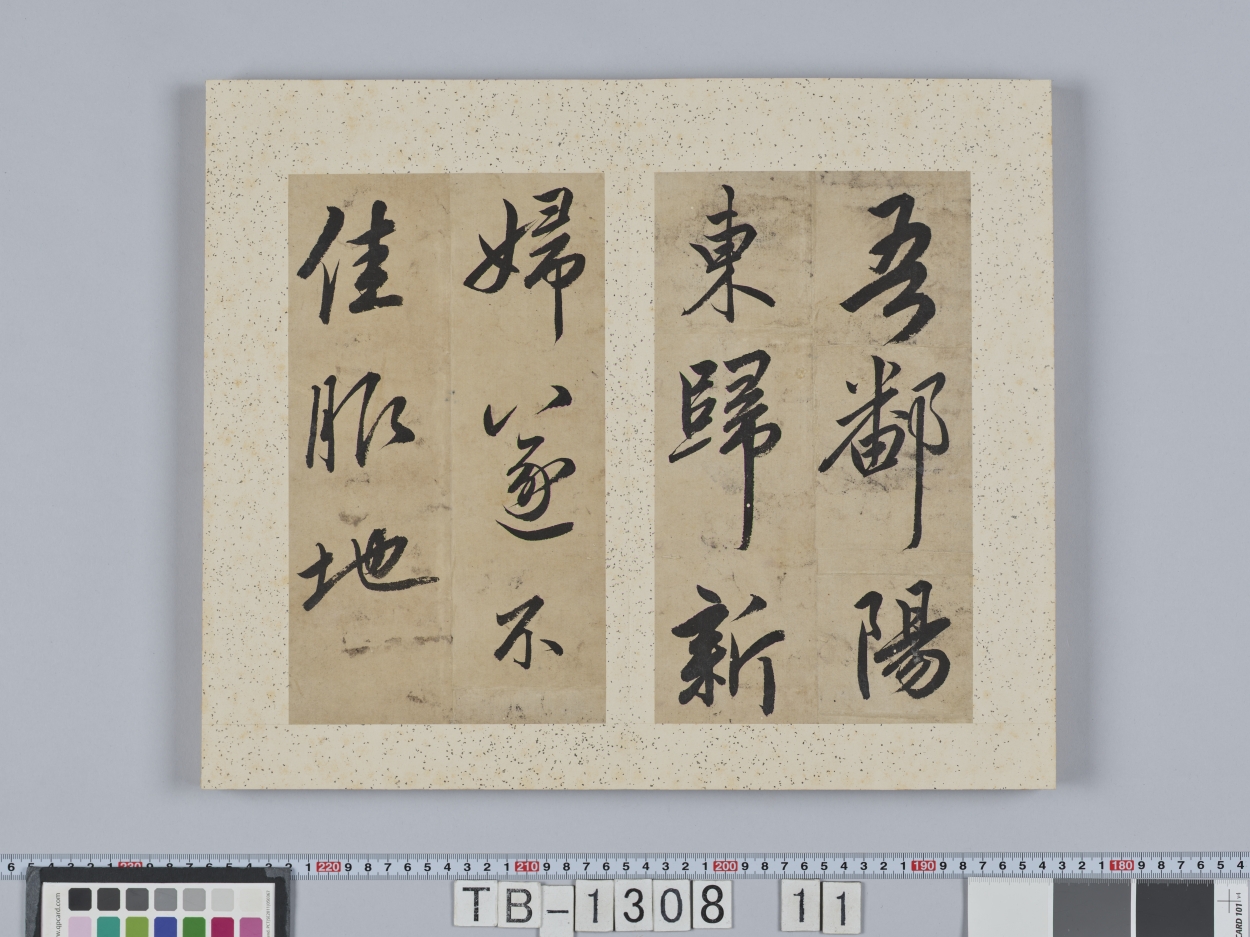 吾鄱陽
東歸新
婦遂不
佳服地
6 5 4 3 2 1 230 9 8 7 6 5 4 3 2 1 220 9 8 7 6 5 4 3 2 1 210 9 8 7 6 5 4 3 2 1 200 9 8 7 6 5 4 3 2 1 190 9 8 7 6 5 4 3 2 1 180 9 8 7 6 5 4
TB-1308 11
www.qpcard.com
CARD 101